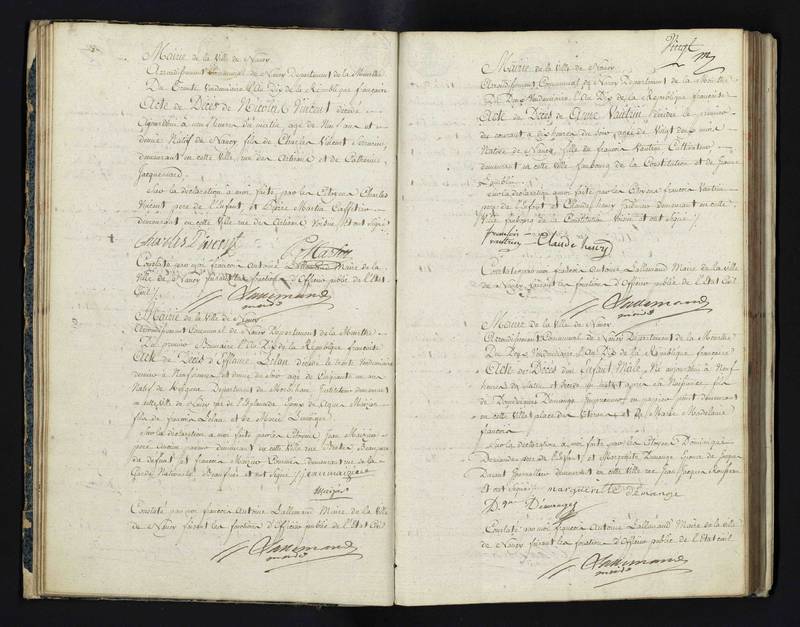 Mairie de la Ville de Nancy
Arrondissement Communal de Nancy Departement de la Meurthe
Du Trente Vendemiaire l'An Dix de la République française
Acte de Décès de Nicolas Vincent décédé
aujourdhui à heures du matin, agé de Neuf ans et
demie Natif de Nancy fils de Charles Vincent
demeurant en cette Ville, rue des Artisans et de Catherine
Jacqueminard
Sur la déclaration à moi faite par les Citoyens Charles
Vincent pere de l'Enfant, et Pierre Martin
demeurant en cette Ville rue des Artisans Voisin, et ont Signé
Charles Vincent
Martin
Constaté par moi françois Antoine Lallemand Maire de la
Ville de Nancy faisant les fonctions d'Officier public de l'Etat
Civil
Lallemand
maire
Mairie de la Ville de Nancy
Arrondissement Communal de Nancy Departement de la Meurthe
Du premier Brumaire l'An Dix de la République françoise
Acte de Décès d' décédé le trente Vendemiaire
dernier à Neuf heures et demie du Soir agé de Cinquante un ans
Natif de Departement du Morbihan Instituteur demeurant
en cette Ville de Nancy rue de l'Esplanade Epoux de
fils de et de Marie
Sur la déclaration à moi faite par les Citoyens Jean
demeurant en cette Ville
du défunt et françois demeurant rue de la
Garde Nationale Beaufrere et ont Signé Jean
Constaté par moi françois Antoine Lallemand Maire de la Ville
de Nancy faisant les fonctions d'Officier public de l'Etat Civil
Lallemand
maire
Vingt
Mairie de la Ville de Nancy
Arrondissement Communal de Nancy Departement de la Meurthe
Du Deux Vendemiaire l'An Dix de la République françoise
Acte de Décès de Vautrin décédée le premier
du courant à dix heures du Soir agée de Vingt deux mois
Native de Nancy, fille de françois Vautrin Cultivateur
demeurant en cette Ville faubourg de la Constitution et de Jeanne
Sur la déclaration à moi faite par les Citoyens françois Vautrin
pere de l'Enfant et Claude henry demeurant en cette
Ville faubourg de la Constitution Voisin et ont Signé
fransois
vautrin Claude henry
Constaté par moi françois Antoine Lallemand Maire de la Ville
de Nancy faisant les fonctions d'Officier public de l'Etat Civil
Lallemand
maire
Mairie de la Ville de Nancy
Arrondissement Communal de Nancy Departement de la Meurthe
Du Deux Vendemiaire l'An Dix de la République francaise
Acte de Décès d'un Enfant Male, Né aujourdhui à Neuf
heures du Matin et décédé un instant après sa Naissance, fils
de Dominique Demange Imprimeur en papier peint demeurant
en cette Ville place du et de Marie Magdelaine
francois
Sur la déclaration à moi faite par les Citoyens Dominique
Demange pere de l'Enfant et Marguerite Demange Epouse de Jacques
demeurant en cette Ville rue Jean Jacques Rousseau
et ont Signé marguerite demange
Dque Demange
Constaté par moi françois Antoine Lallemand Maire de la Ville
de Nancy faisant les fonctions d'Officier public de l'Etat civil
Lallemand
maire